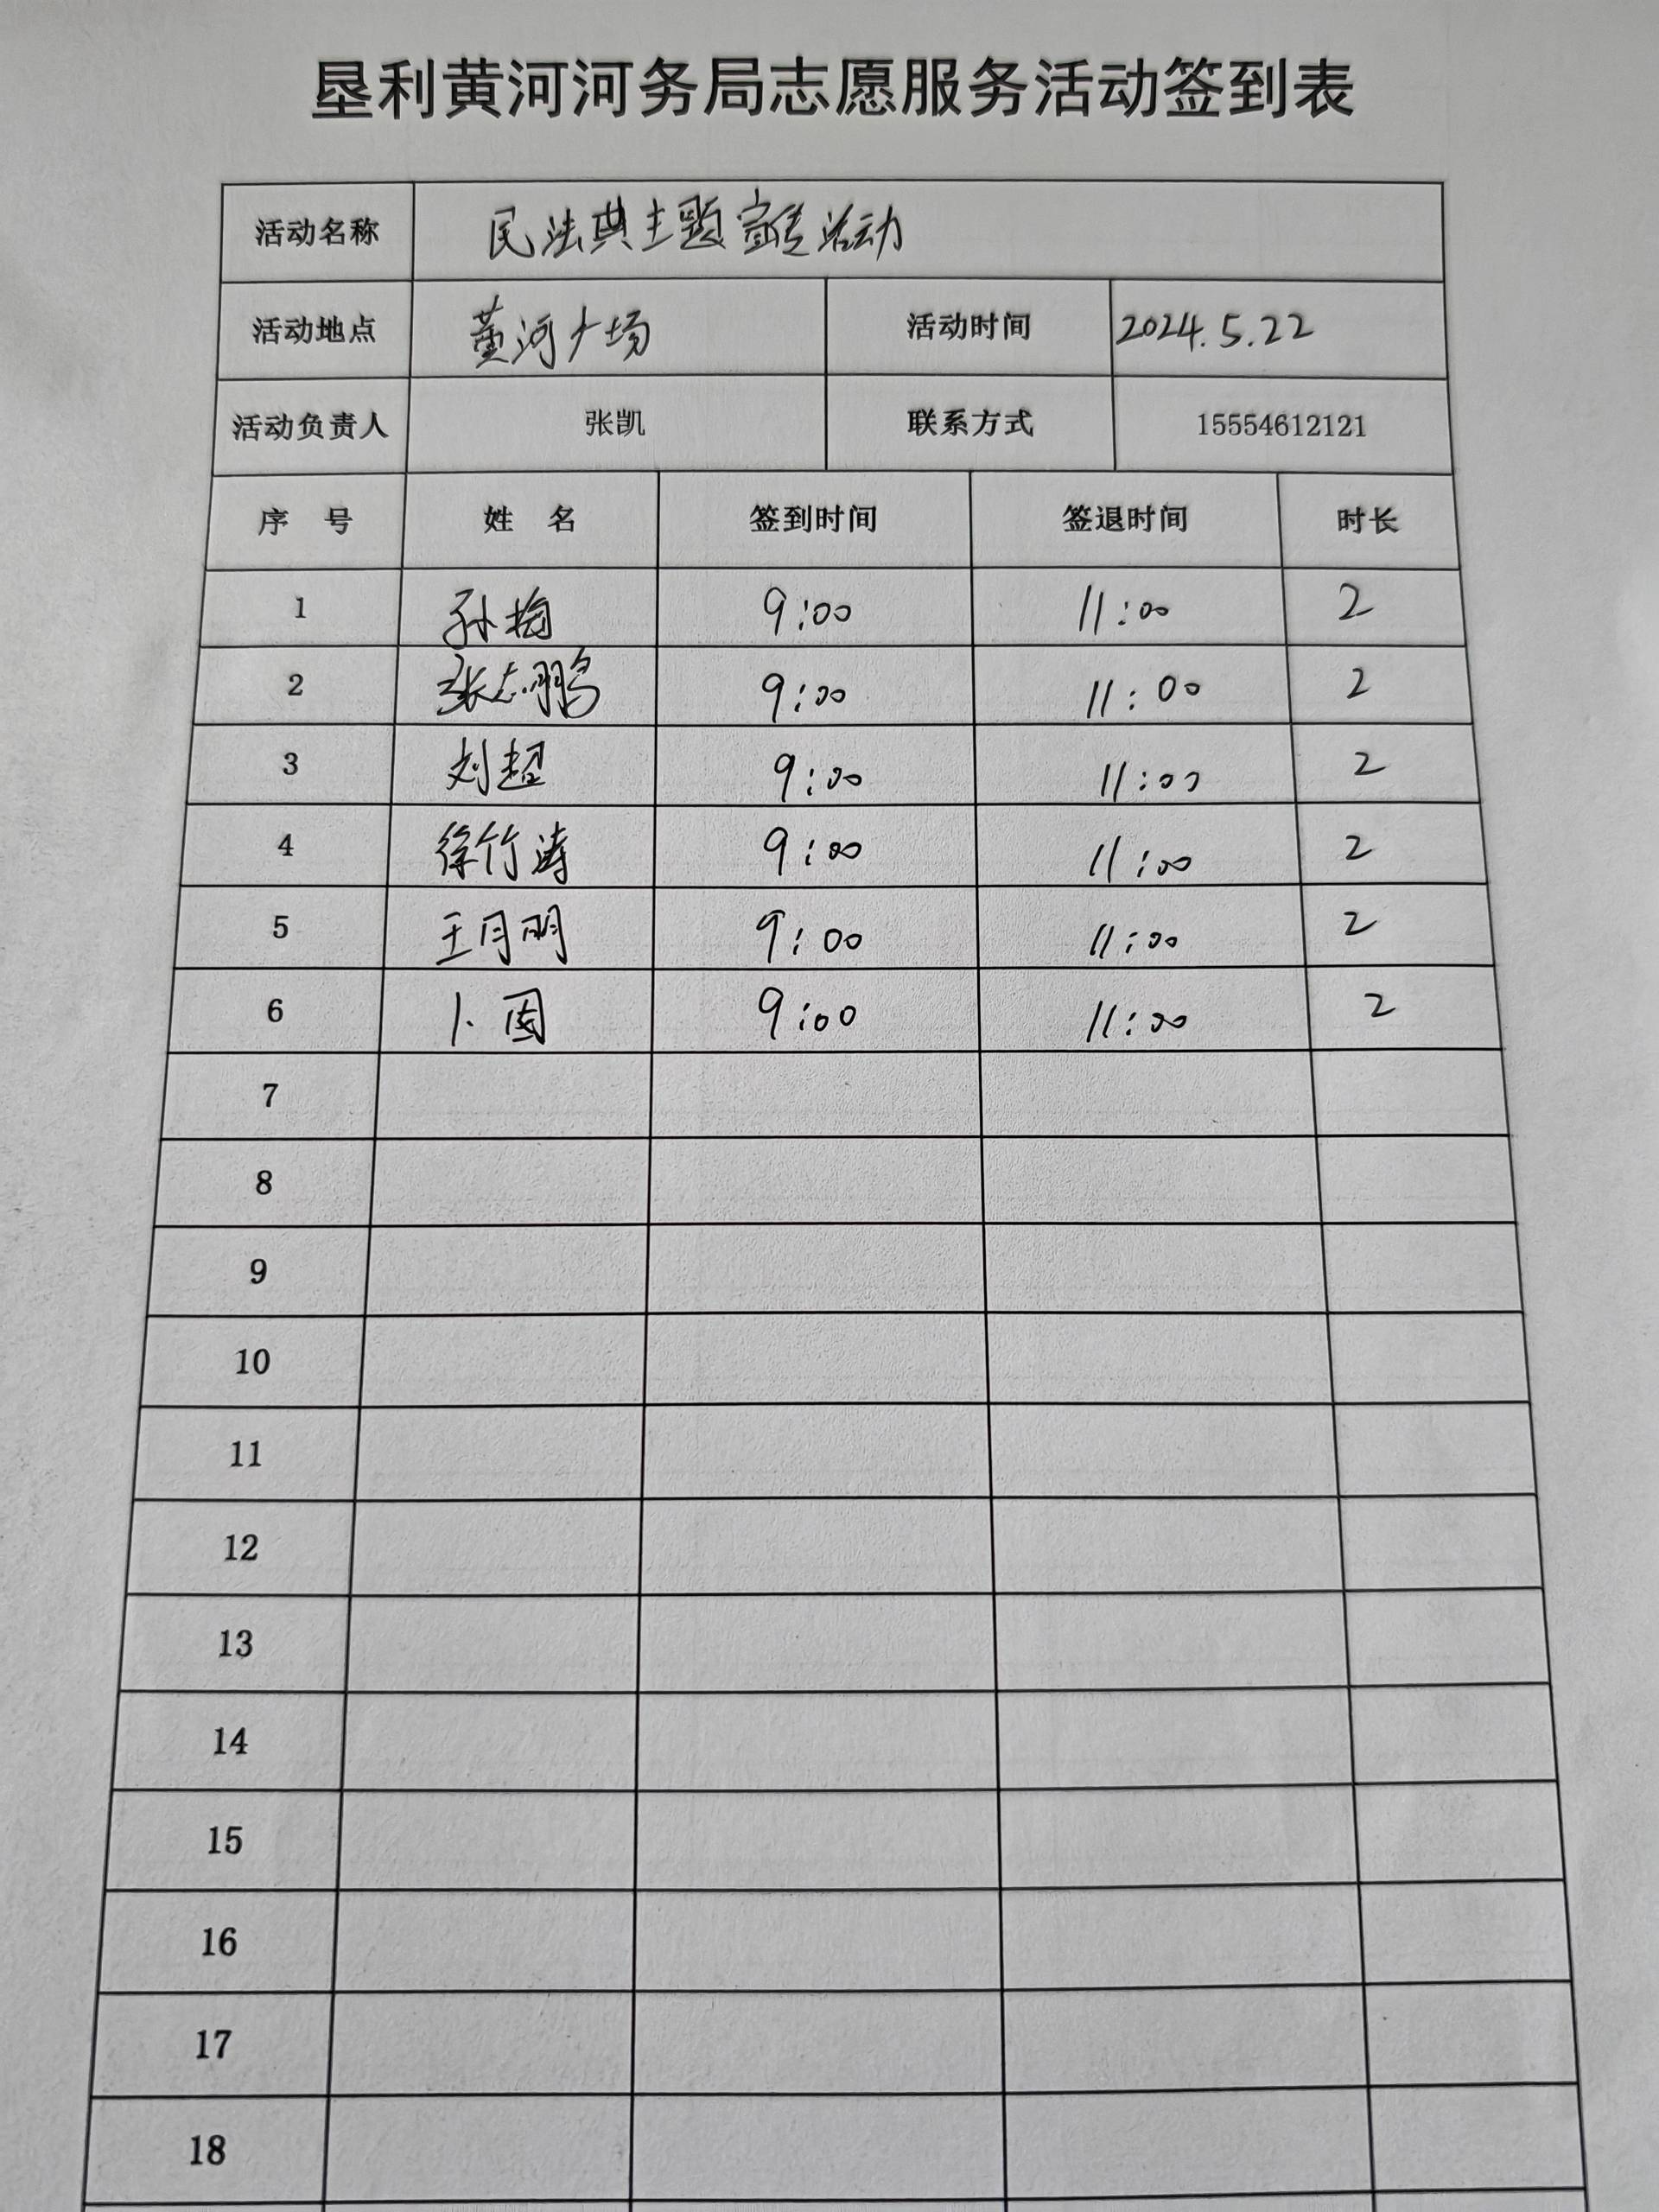 垦利黄河河务局志愿服务活动签到表
活动名称 民法典主题宣传活动
活动地点 黄河广场 活动时间 2024.5.22
活动负责人 张凯 联系方式 15554612121
序 号 姓 名 签到时间 签退时间 时长
1 孙梅 9:00 11:00 2
2 张志鹏 9:00 11:00 2
3 刘超 9:00 11:00 2
4 徐竹涛 9:00 11:00 2
5 王月明 9:00 11:00 2
6 卜 9:00 11:00 2
7
8
9
10
11
12
13
14
15
16
17
18